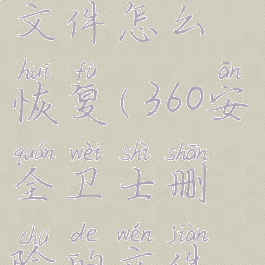 文件怎么
huī fù ān
恢复(360安
quán wèi shì shān
全卫士删
chú de wén jiàn
除的文件